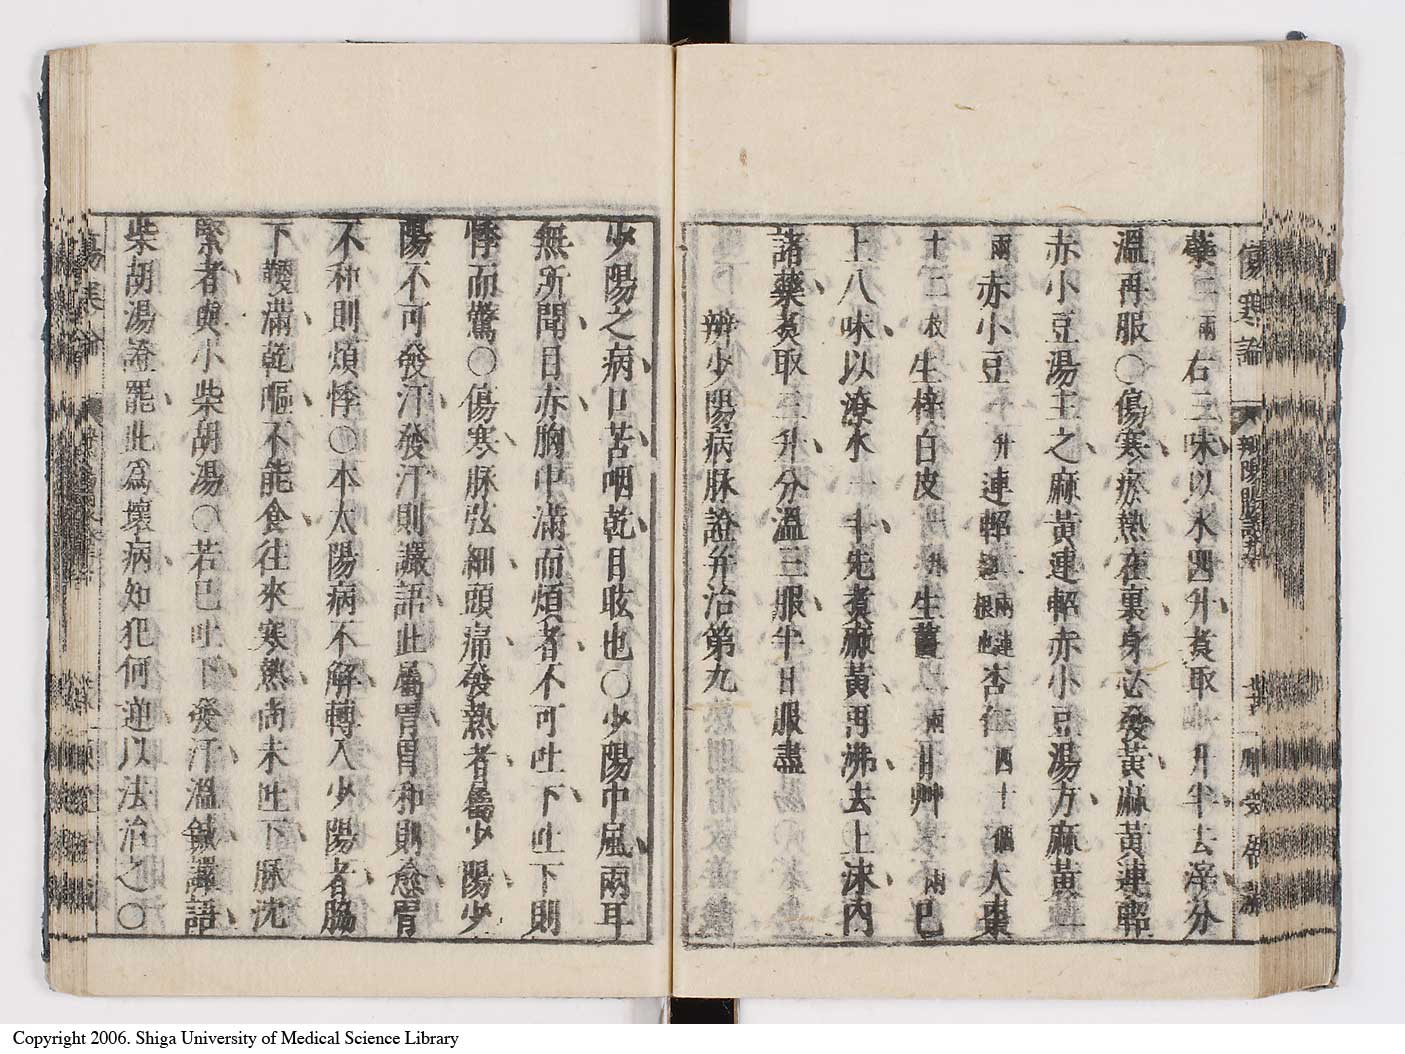 蘗二兩右三味以水四升煮取一升半去滓分
溫再服○傷寒瘀熱在裏身必發黃麻黃連軺
赤小豆湯主之麻黃連軺赤小豆湯方麻黃二
兩赤小豆一升連軺二兩連翹根也杏仁四十個大棗
十二枚生梓白皮一升生薑二兩甘艸二兩已
上八味以潦水一斗先煮麻黃再沸去上沫內
諸藥煮取三升分溫三服半日服盡
辨少陽病脉證并治第九
少陽之病口苦咽乾目眩也○少陽中風兩耳
無所聞目赤胸中滿而煩者不可吐下吐下則
悸而驚○傷寒脉弦細頭痛發熱者屬少陽少
陽不可發汗發汗則讝語此屬胃胃和則愈胃
不和則煩悸○本太陽病不解轉入少陽者脇
下鞕滿乾嘔不能食往來寒熱尚未吐下脈沈
緊者與小柴胡湯○若已吐下發汗溫鍼譯語
柴胡湯證罷此爲壞病知犯何逆以法治之○
傷寒論
Copyright 2006. Shiga University of Medical Science Library